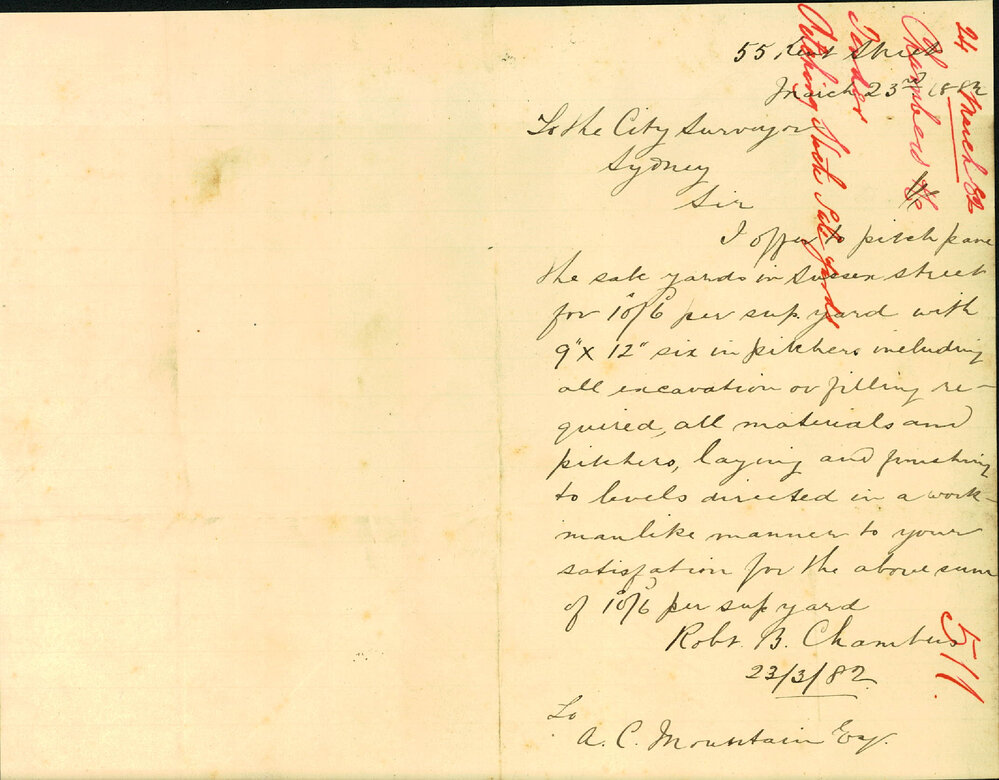 55 Kent Street
March 23rd 1882
To the City Surveyor
Sydney
Sir
I offer to pitch pave
the sale yards in Sussex Street
for 10/6 per sup. yard with
9" x 12" six in pitchers including
all excavation or filling re-
quired, all materials and
pitchers, laying and finishing
to levels directed in a work-
manlike manner to your
satisfation for the above sum
of 10/6 per sup yard
Robt. B. Chambers
23/3/82
To
A. C. Mountain Esq.
24 March 82
Chambers
Tender
Pitching Stock Sale yards
511.